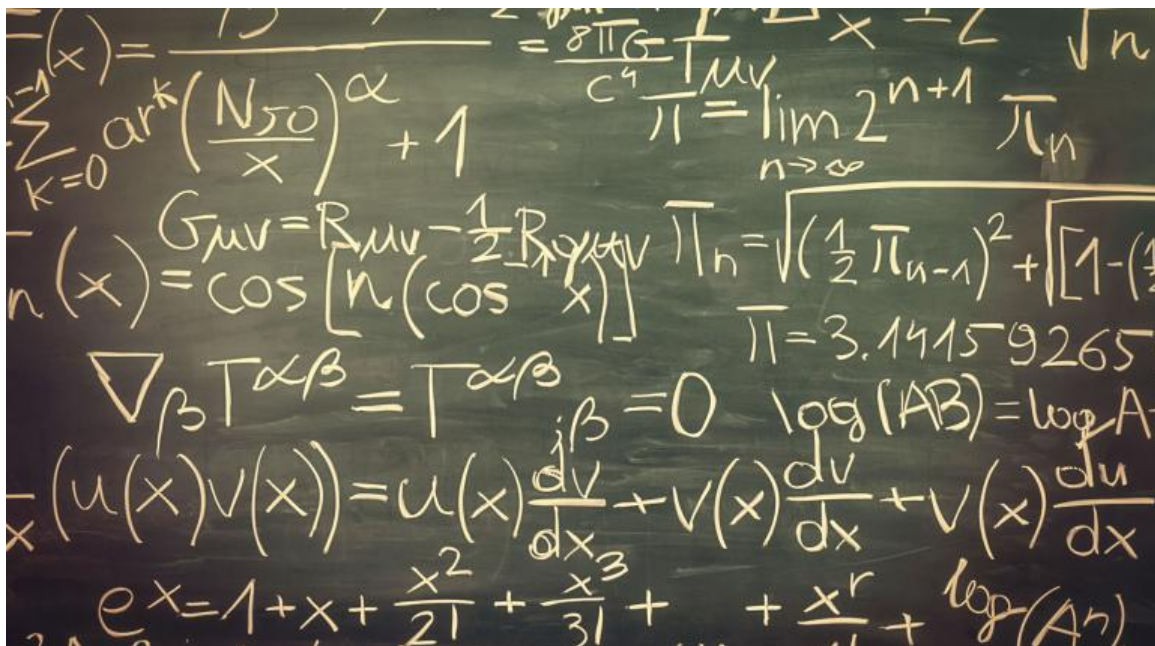 (x) = = 8πG/c⁴ Tμν x 2 √n
∑ k=0 n-1 ar^k (N50/x)^α + 1 π = lim n→∞ 2^(n+1) π_n
Gμν = Rμν - 1/2 R π_n = √((1/2 π_(n-1))² + √[1-(1/2
n(x) = cos[n(cos x)]
π = 3.14159265
∇_β T^αβ = T^αβ_;β = 0 log(AB) = log A
x (u(x)v(x)) = u(x) dv/dx + v(x) dv/dx + v(x) du/dx
e^x = 1 + x + x²/2! + x³/3! + + x^r + log(Aⁿ)